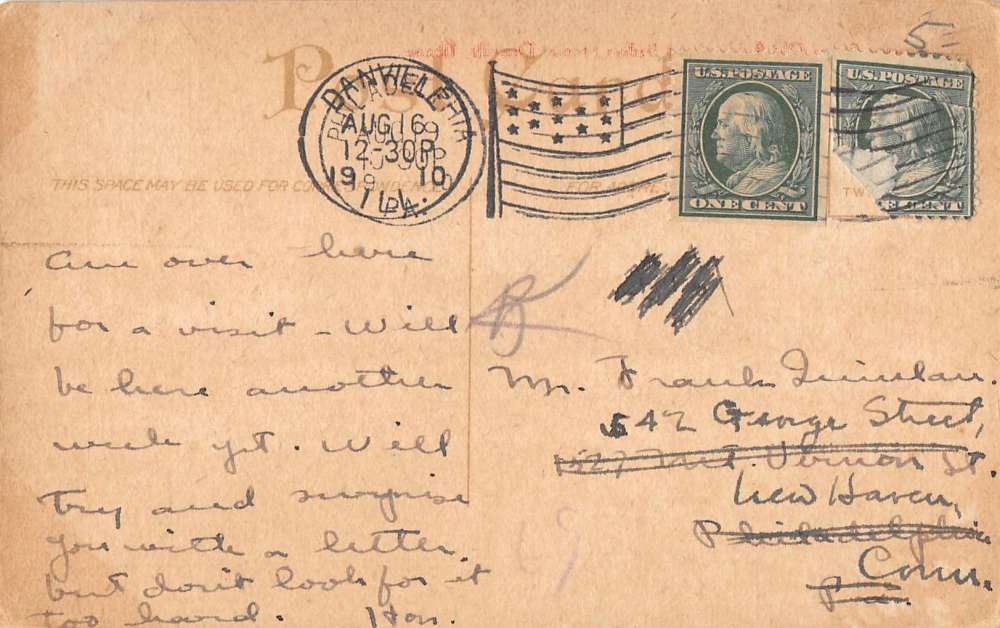 5
Post Card
DANVILLE
PHILADELPHIA
AUG 16
12-30P
1910
ILL.
PA.
U.S. POSTAGE
ONE CENT
U.S. POSTAGE
CENT
THIS SPACE MAY BE USED FOR CORRESPONDENCE
FOR
TW
am over here
for a visit - Will
be here another
week yet. Will
try and surprise
you with a letter,
but don't look for it
too hard. Hon.
Mr. Frank Quinlan.
542 George Street,
1527 Mt. Vernon St.
New Haven,
Philadelphia
Conn.
Pa.